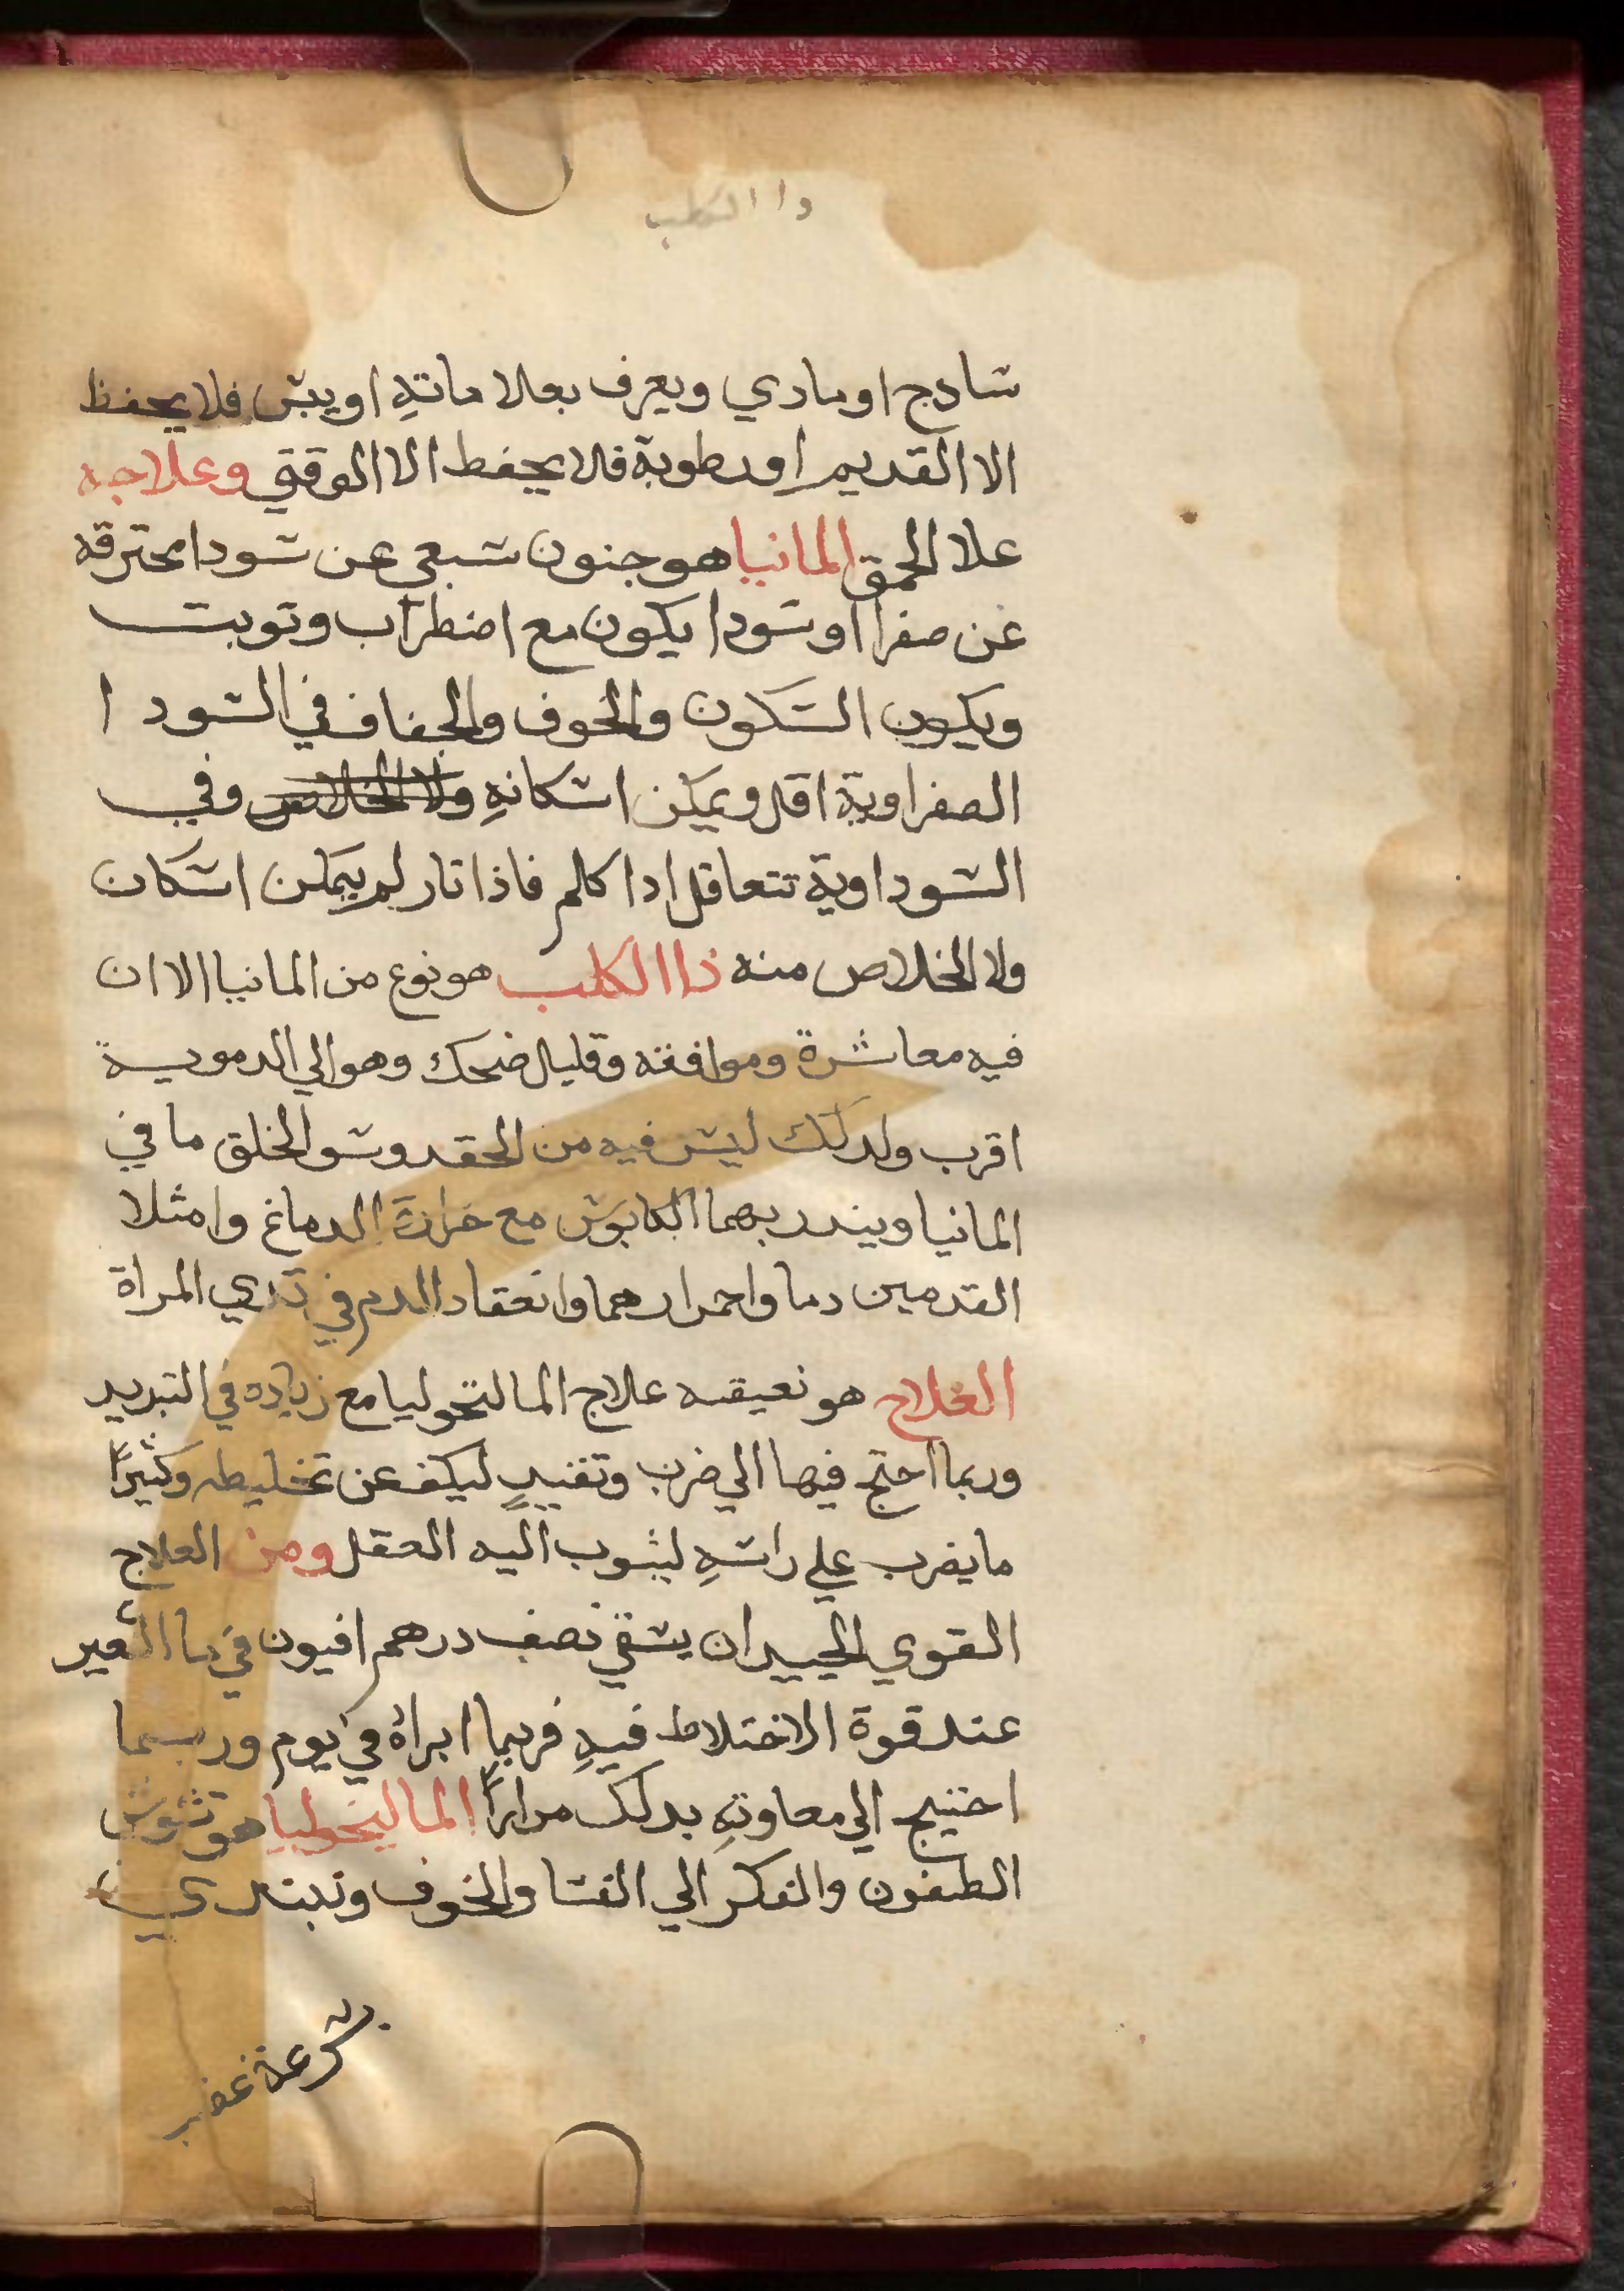 دا الكلب
شادج او مادي ويعرف بعلا ماتهِ او يبس فلا يحفظ
الا القديم او رطوبة فلا يحفظ الا الوقتي وعلاجه
علا الحمق المانيا هو جنون سبعي عن سودا محترقه
عن صفرا او سودا يكون مع اضطراب وتوبت
ويكون السكون والخوف والجفاف في السودا
الصفراوية اقل ويمكن اسكانهِ ولا الخلاص وفي
السوداوية تتعاقل ادا كلم فاذا تار لم يمكن اسكان
ولا الخلاص منه ذا الكلب هو نوع من المانيا الا ان
فيه معاشرة وموافقه وقليل ضحك وهو الي الدموية
اقرب ولدلك ليس فيه من الحقد وسو الخلق ما في
المانيا ويندر بهما الكابوس مع حرارة الدماغ وامثلا
القدمين دما واحمرارهما وانعقاد الدم في تدي المراة
العلاج هو نعيقه علاج المالنخوليا مع زياده في التبريد
وربما احتج فيها الي ضرب وتقييدٍ ليكف عن تخليطه وكثيرًا
ما يضرب علي راسهِ ليثوب اليه العقل ومن العلاج
القوي الجيد ان يسقي نصف درهم افيون في ما الشعير
عند قوة الاختلاط فيهِ فربما ابراهُ في يوم وربما
احتيج الي معاودتهِ بدلك مرارًا الماليخوليا هو تشوش
الظنون والفكر الي الفسا والخوف وتبتدي
بسرعة غضب